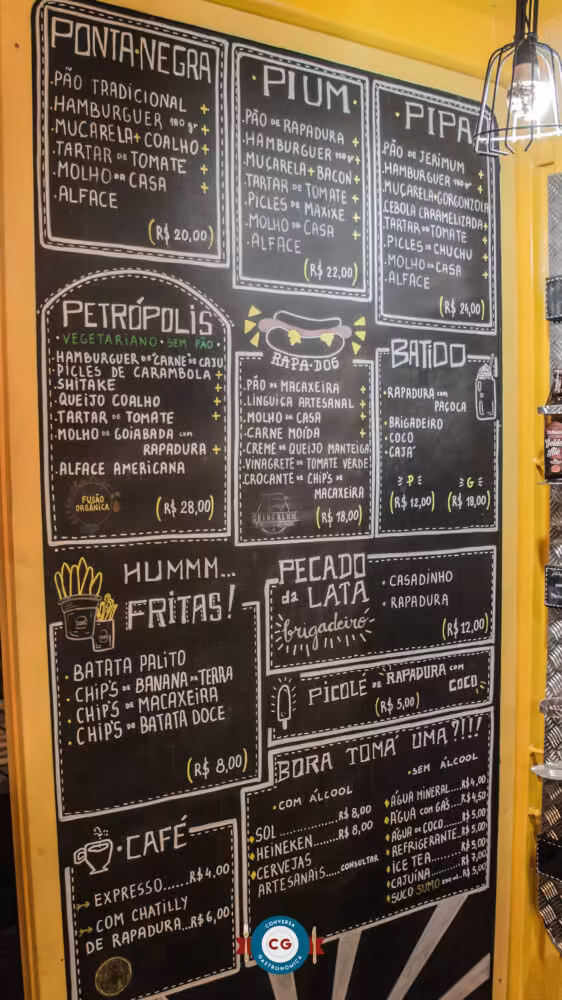 PONTA·NEGRA
·PÃO TRADICIONAL +
·HAMBURGUER 180 gr +
·MUÇARELA + COALHO +
·TARTAR DE TOMATE +
·MOLHO DA CASA +
·ALFACE
(R$ 20,00)
·PIUM·
·PÃO DE RAPADURA +
·HAMBURGUER 180 gr +
·MUÇARELA + BACON +
·TARTAR DE TOMATE +
·PICLES DE MAXIXE +
·MOLHO DA CASA +
·ALFACE
(R$ 22,00)
·PIPA
·PÃO DE JERIMUM +
·HAMBURGUER 180 gr +
·MUÇARELA+GORGONZOLA
·CEBOLA CARAMELIZADA +
·TARTAR DE TOMATE +
·PICLES DE CHUCHU +
·MOLHO DA CASA +
·ALFACE
(R$ 24,00)
PETRÓPOLIS
·VEGETARIANO·SEM PÃO·
·HAMBURGUER DE "CARNE" DE CAJU
·PICLES DE CARAMBOLA +
·SHITAKE +
·QUEIJO COALHO +
·TARTAR DE TOMATE +
·MOLHO DE GOIABADA COM
RAPADURA +
·ALFACE AMERICANA
FUSÃO
ORGÂNICA
(R$ 28,00)
RAPA-DOG
·PÃO DE MACAXEIRA +
·LINGUIÇA ARTESANAL +
·MOLHO DA CASA +
·CARNE MOÍDA +
·CREME DE QUEIJO MANTEIGA
·VINAGRETE DE TOMATE VERDE
·CROCANTE DE CHIP'S DE
MACAXEIRA
(R$ 18,00)
·BATIDO
·RAPADURA COM
PAÇOCA
·BRIGADEIRO
·COCO
·CAJÁ
P G
(R$ 12,00) (R$ 18,00)
HUMMM...
FRITAS!
·BATATA PALITO
·CHIP'S DE BANANA DA TERRA
·CHIP'S DE MACAXEIRA
·CHIP'S DE BATATA DOCE
(R$ 8,00)
PECADO
da LATA
brigadeiro
·CASADINHO
·RAPADURA
(R$ 12,00)
PICOLÉ DE RAPADURA COM
COCO
(R$ 5,00)
BORA TOMÁ UMA ?!!!
·COM ÁLCOOL
SOL...........R$ 8,00
HEINEKEN......R$ 8,00
CERVEJAS
ARTESANAIS.....CONSULTAR
·SEM ÁLCOOL
ÁGUA MINERAL...R$ 4,00
ÁGUA COM GÁS...R$ 4,50
ÁGUA DE COCO...R$ 5,00
REFRIGERANTE...R$ 5,00
ICE TEA........R$ 5,00
CAJUÍNA........R$ 7,00
SUCO SUMO R$ 5,00
·CAFÉ
EXPRESSO......R$ 4,00
COM CHATILLY
DE RAPADURA...R$ 6,00
CONVERSA
CG
GASTRONÔMICA